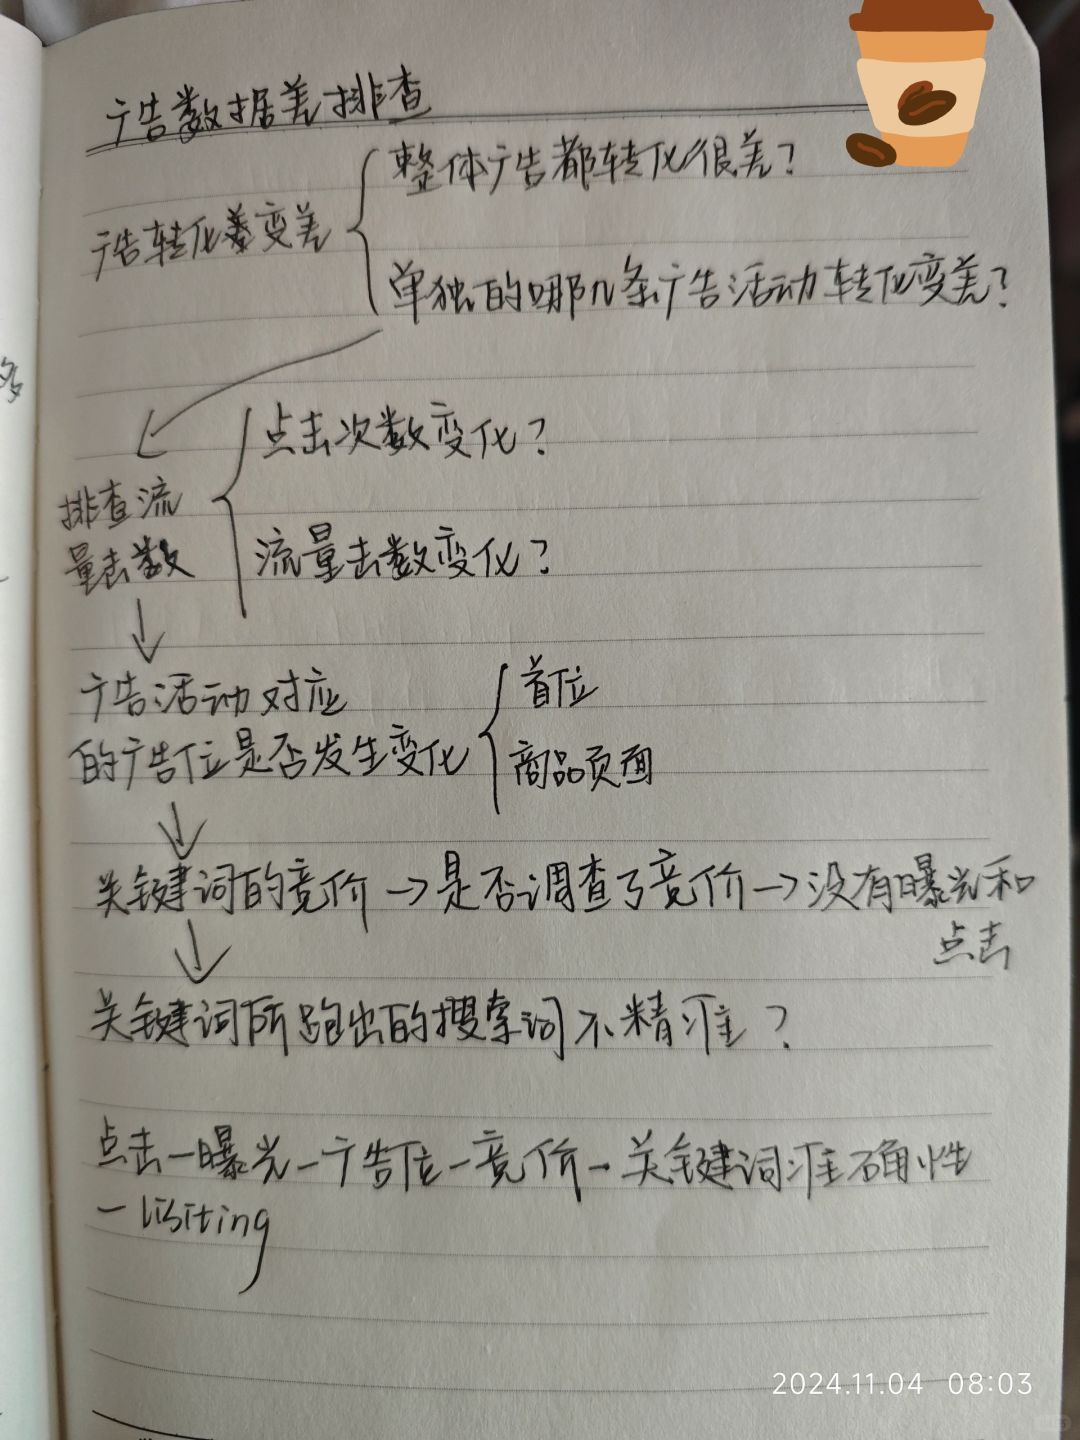 广告数据差排查
整体广告都转化很差？
广告转化变差
单独的哪几条广告活动转化变差？
点击次数变化？
排查流
量击数
流量击数变化？
广告活动对应
的广告位是否发生变化
首位
商品页面
关键词的竞价→是否调查了竞价→没有曝光和
点击
关键词所跑出的搜索词不精准？
点击－曝光－广告位－竞价－关键词准确性
－listing
2024.11.04 08:03